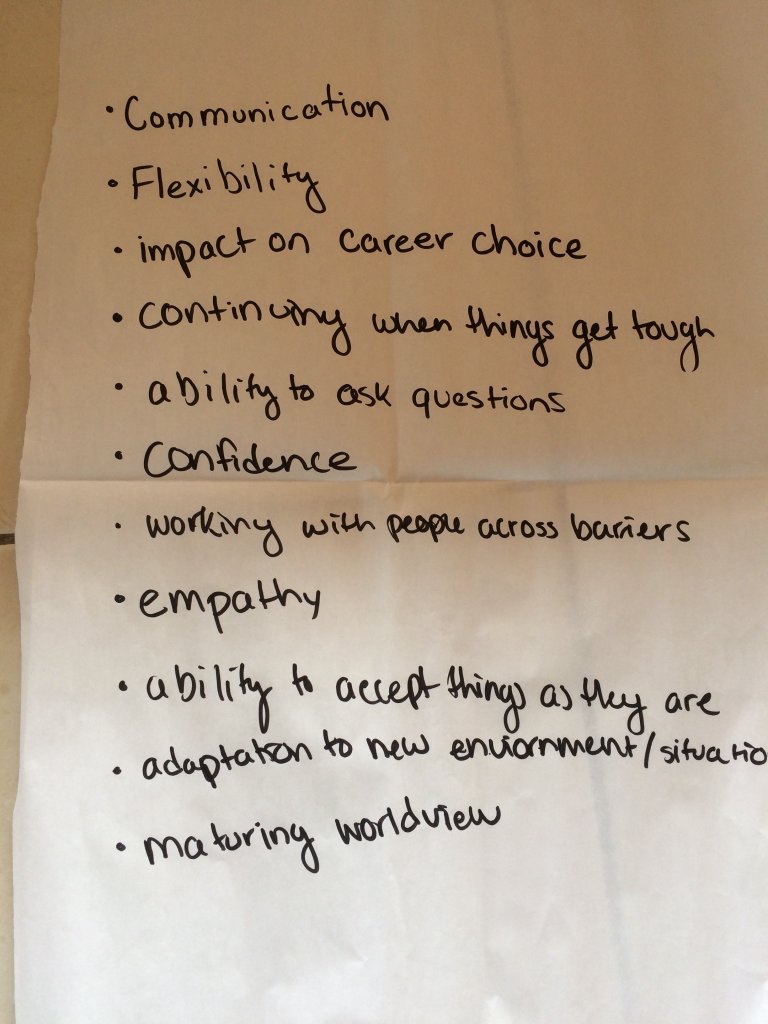 • Communication
• Flexibility
• impact on career choice
• continuing when things get tough
• ability to ask questions
• Confidence
• working with people across barriers
• empathy
• ability to accept things as they are
• adaptation to new enviornment/situatio
• maturing worldview